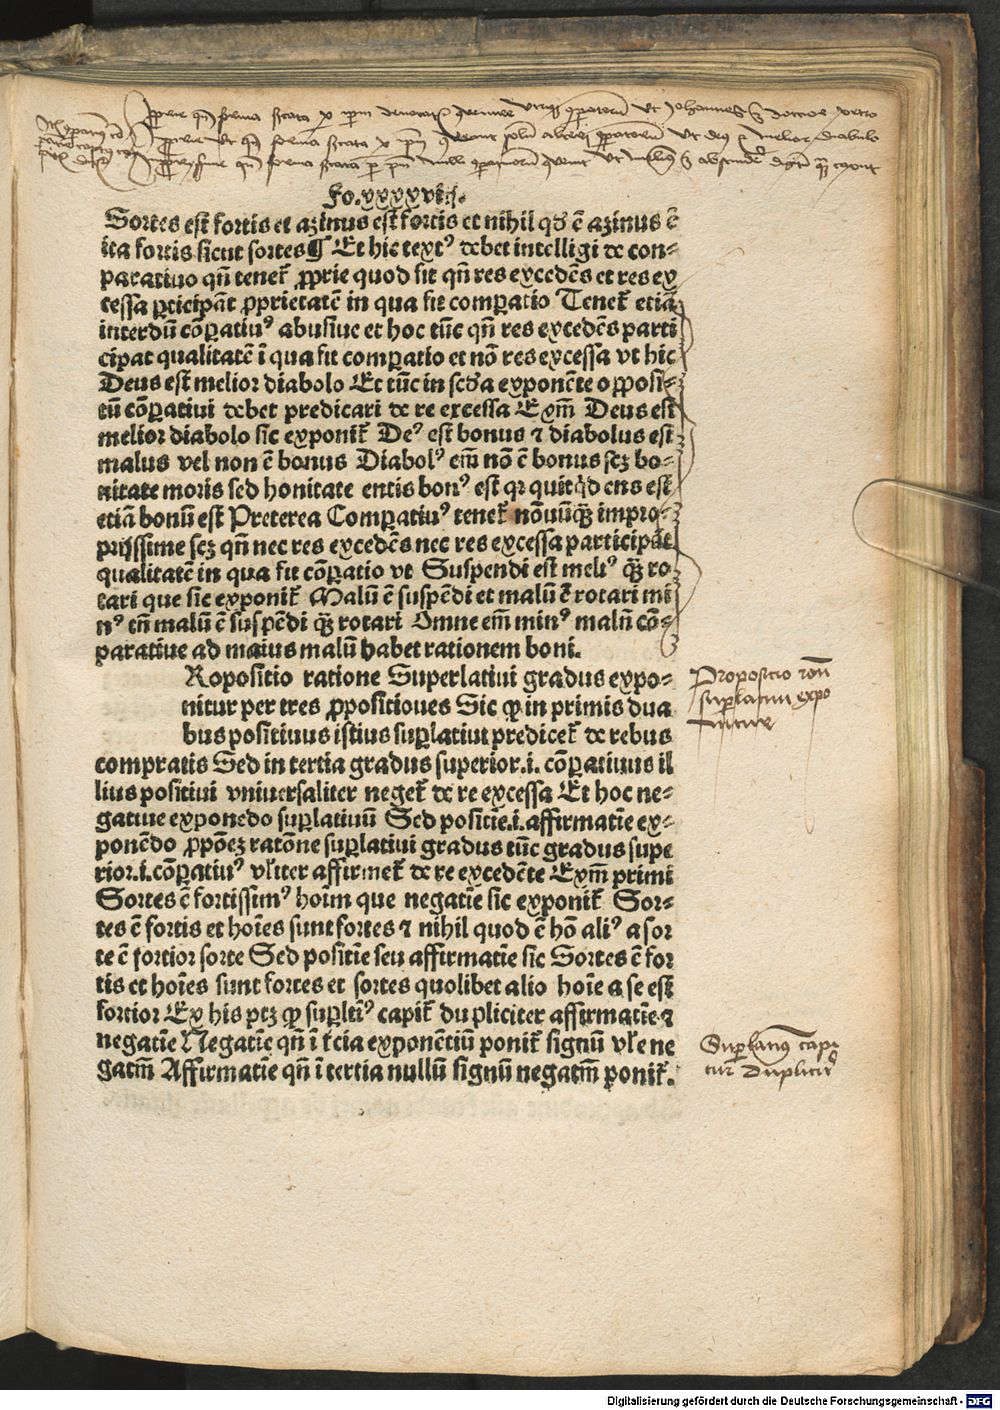 Fo.xxxxvij.
Sortes est fortis et azinus est fortis et nihil qd̕ ē azinus ē
ita fortis sicut sortes¶ Et hic textꝰ debet intelligi de con⸗
paratiuo qn̄ tenet̃ ꝓprie quod fit qn̄ res excedēs et res ex
cessa ꝑticipāt ꝓprietatē in qua fit comꝑatio Tenet̃ etiā
interdū cōꝑatiuꝰ abusiue et hoc tūc qn̄ res excedēs parti
cipat qualitatē ī qua fit comꝑatio et nō res excessa vt hic
Deus est melior diabolo Et tūc in scd̕a exponēte o ꝓposi⸗
tū cōꝑatiui debet predicari de re excessa Exm̄ Deus est
melior diabolo sic exponit̃ Deꝰ est bonus ⁊ diabolus est
malus vel non ē bonus Diabolꝰ em̄ nō ē bonus scꝫ bo⸗
nitate moris sed honitate entis bonꝰ est qꝛ quitq̇d ens est
etiā bonū est Preterea Comꝑatiuꝰ tenet̃ nōnūꝗꝫ impro⸗
prijssime scꝫ qn̄ nec res excedēs nec res excessa participāt
qualitatē in qua fit cōꝑatio vt Suspendi est meliꝰ ꝗꝫ ro⸗
tari que sic exponit̃ Malū ē suspēdi et malū ē rotari mi
nꝰ tn̄ malū ē suspēdi ꝗꝫ rotari Omne em̄ minꝰ malū cō⸗
paratiue ad maius malū habet rationem boni.
Ropositio ratione Superlatiui gradus expo⸗
nitur per tres ꝓpositioues Sic ꝙ in primis dua
bus positiuus istius suꝑlatiui predicet̃ de rebus
compratis Sed in tertia gradus superior.i. cōꝑatiuus il
lius positiui vniuersaliter neget̃ de re excessa Et hoc ne⸗
gatiue exponedo suꝑlatiuū Sed positīe.i.affirmatīe ex⸗
ponēdo ꝓpōeꝫ ratōne suꝑlatiui gradus tūc gradus supe
rior.i.cōꝑatiuꝰ vl̕iter affirmet̃ de re excedēte Exm̄ primi
Sortes ē fortissimꝰ hoīm que negatīe sic exponit̃ Sor⸗
tes ē fortis et hoīes sunt fortes ⁊ nihil quod ē hō aliꝰ a sor
te ē fortior sorte Sed positīe seu affirmatīe sic Sortes ē for
tis et hoīes sunt fortes et sortes quolibet alio hoīe a se est
fortior Ex his ptꝫ ꝙ suꝑltīꝰ capit̃ dupliciter affirmatīe⁊
negatīe Negatīe qn̄ ī t̕cia exponētiū ponit̃ signū vl̕e ne
gatm̄ Affirmatīe qn̄ ī tertia nullū signū negatm̄ ponit̃.
Propositio rōn
suꝑlatiui expo
nitur
Suꝑlatiuꝰ capi
tur dupliciṫ
Digitalisierung gefördert durch die Deutsche Forschungsgemeinschaft - DFG